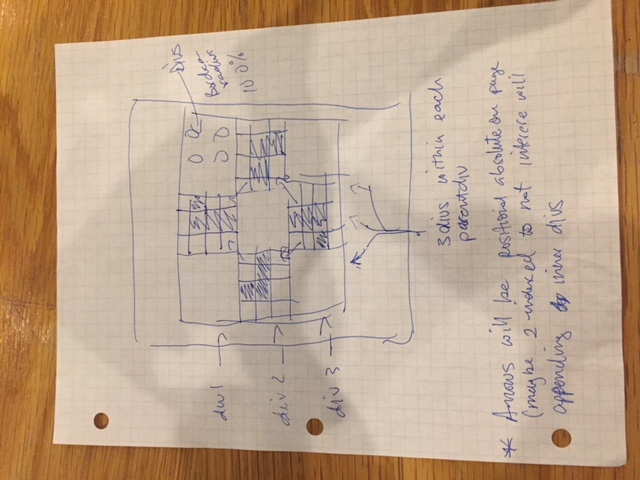 Divs
Border
radius
100%
div 1
div 2
div 3
3 divs within each
parent div
* Arrows will be positional absolute on page
(maybe z indexed to not interece will
appending to inner divs